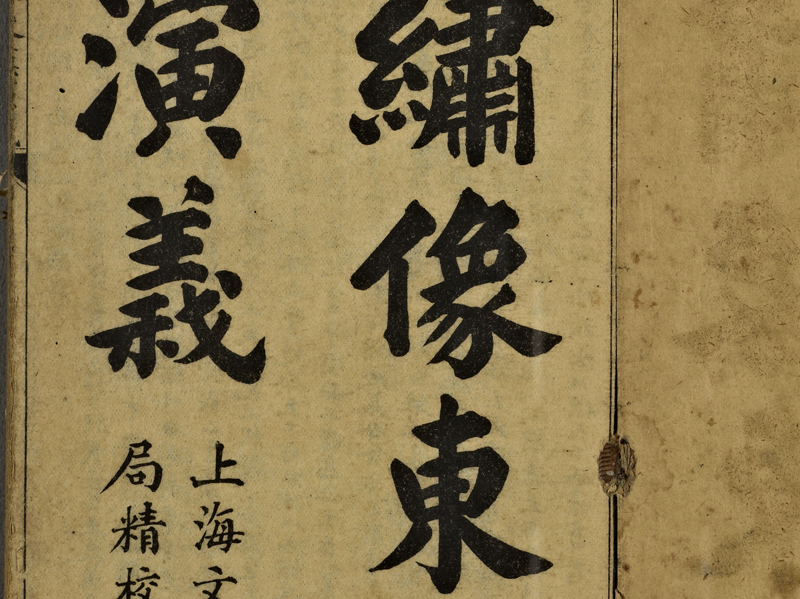 繡像東
演義
上海文
局精校